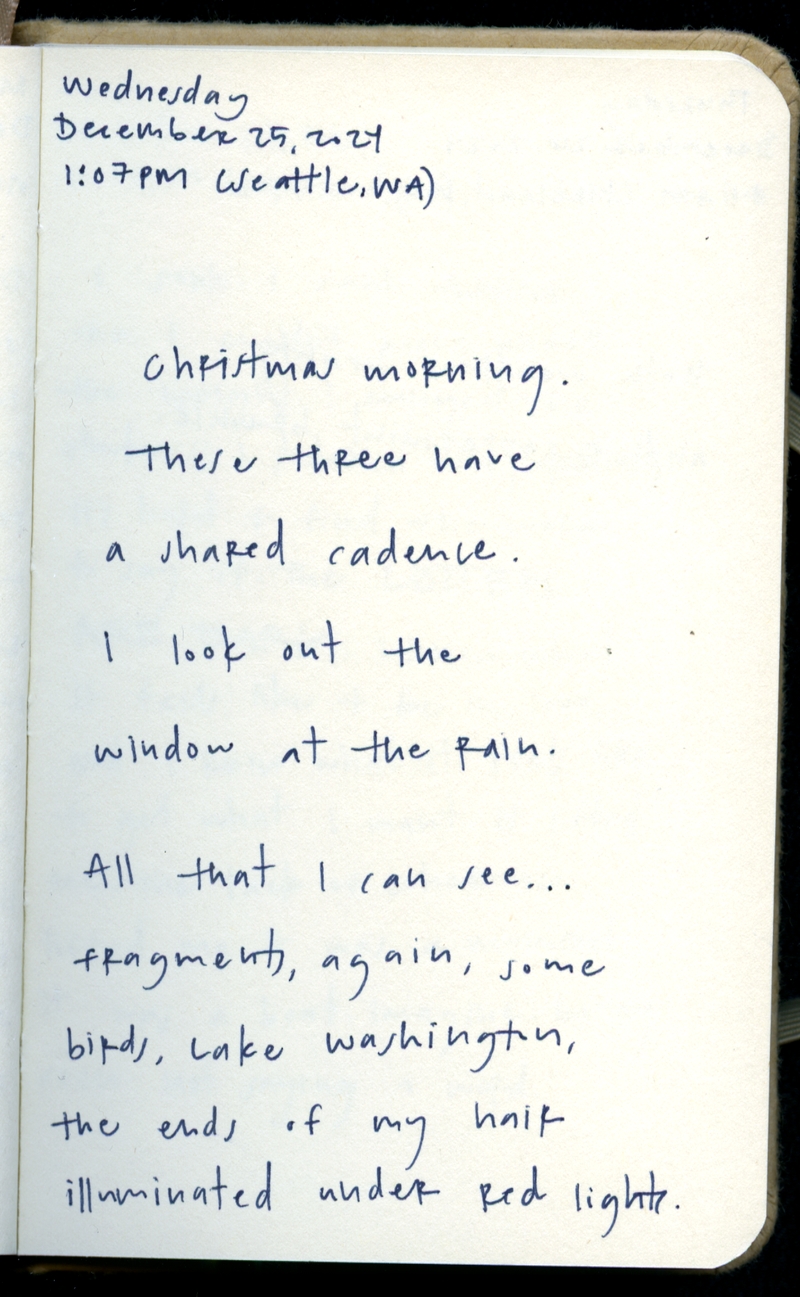 Wednesday
December 25, 2024
1:07PM (Seattle, WA)
Christmas morning.
These three have
a shared cadence.
I look out the
window at the rain.
All that I can see...
fragments, again, some
birds, Lake Washington,
the ends of my hair
illuminated under red lights.